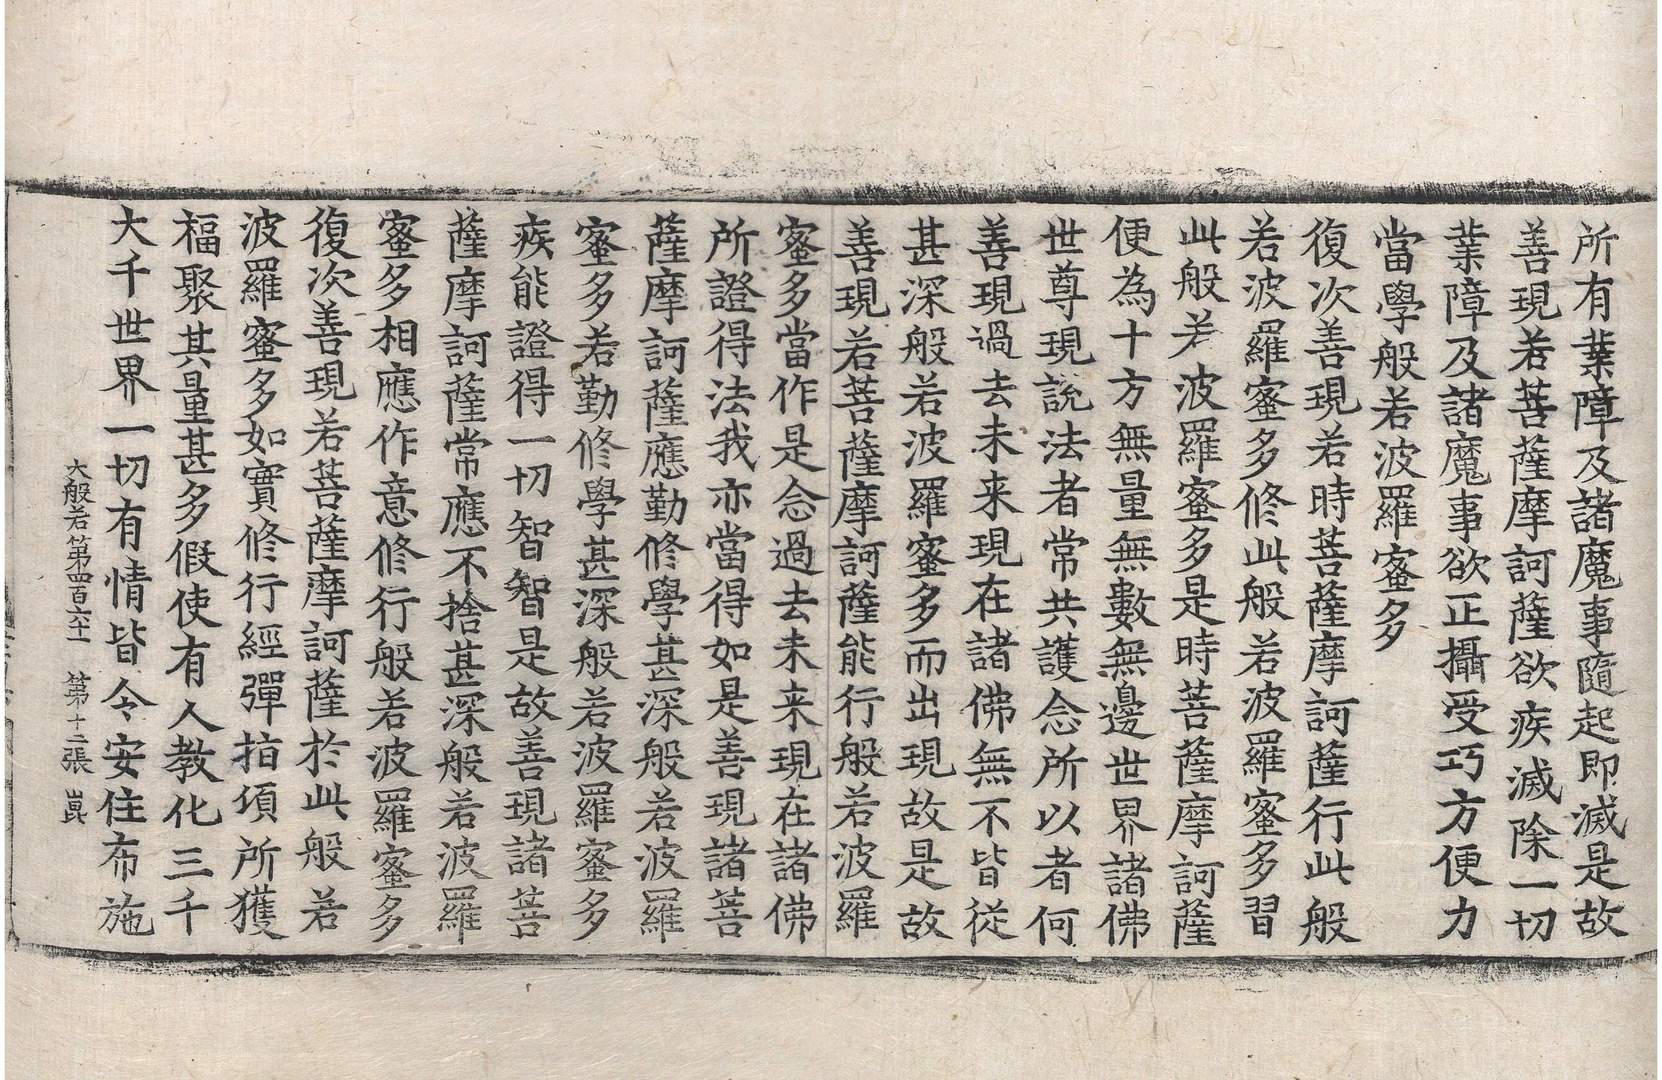 所有業障及諸魔事隨起即滅是故
善現若菩薩摩訶薩欲疾滅除一切
業障及諸魔事欲正攝受巧方便力
當學般若波羅蜜多
復次善現若時菩薩摩訶薩行此般
若波羅蜜多修此般若波羅蜜多習
此般若波羅蜜多是時菩薩摩訶薩
便為十方無量無數無邊世界諸佛
世尊現說法者常共護念所以者何
善現過去未来現在諸佛無不皆從
甚深般若波羅蜜多而出現故是故
善現若菩薩摩訶薩能行般若波羅
蜜多當作是念過去未来現在諸佛
所證得法我亦當得如是善現諸菩
薩摩訶薩應勤修學甚深般若波羅
蜜多若勤修學甚深般若波羅蜜多
疾能證得一切智智是故善現諸菩
薩摩訶薩常應不捨甚深般若波羅
蜜多相應作意修行般若波羅蜜多
復次善現若菩薩摩訶薩於此般若
波羅蜜多如實修行經彈指頃所獲
福聚其量甚多假使有人教化三千
大千世界一切有情皆令安住布施
大般若第四百六十一 第十二張 崑